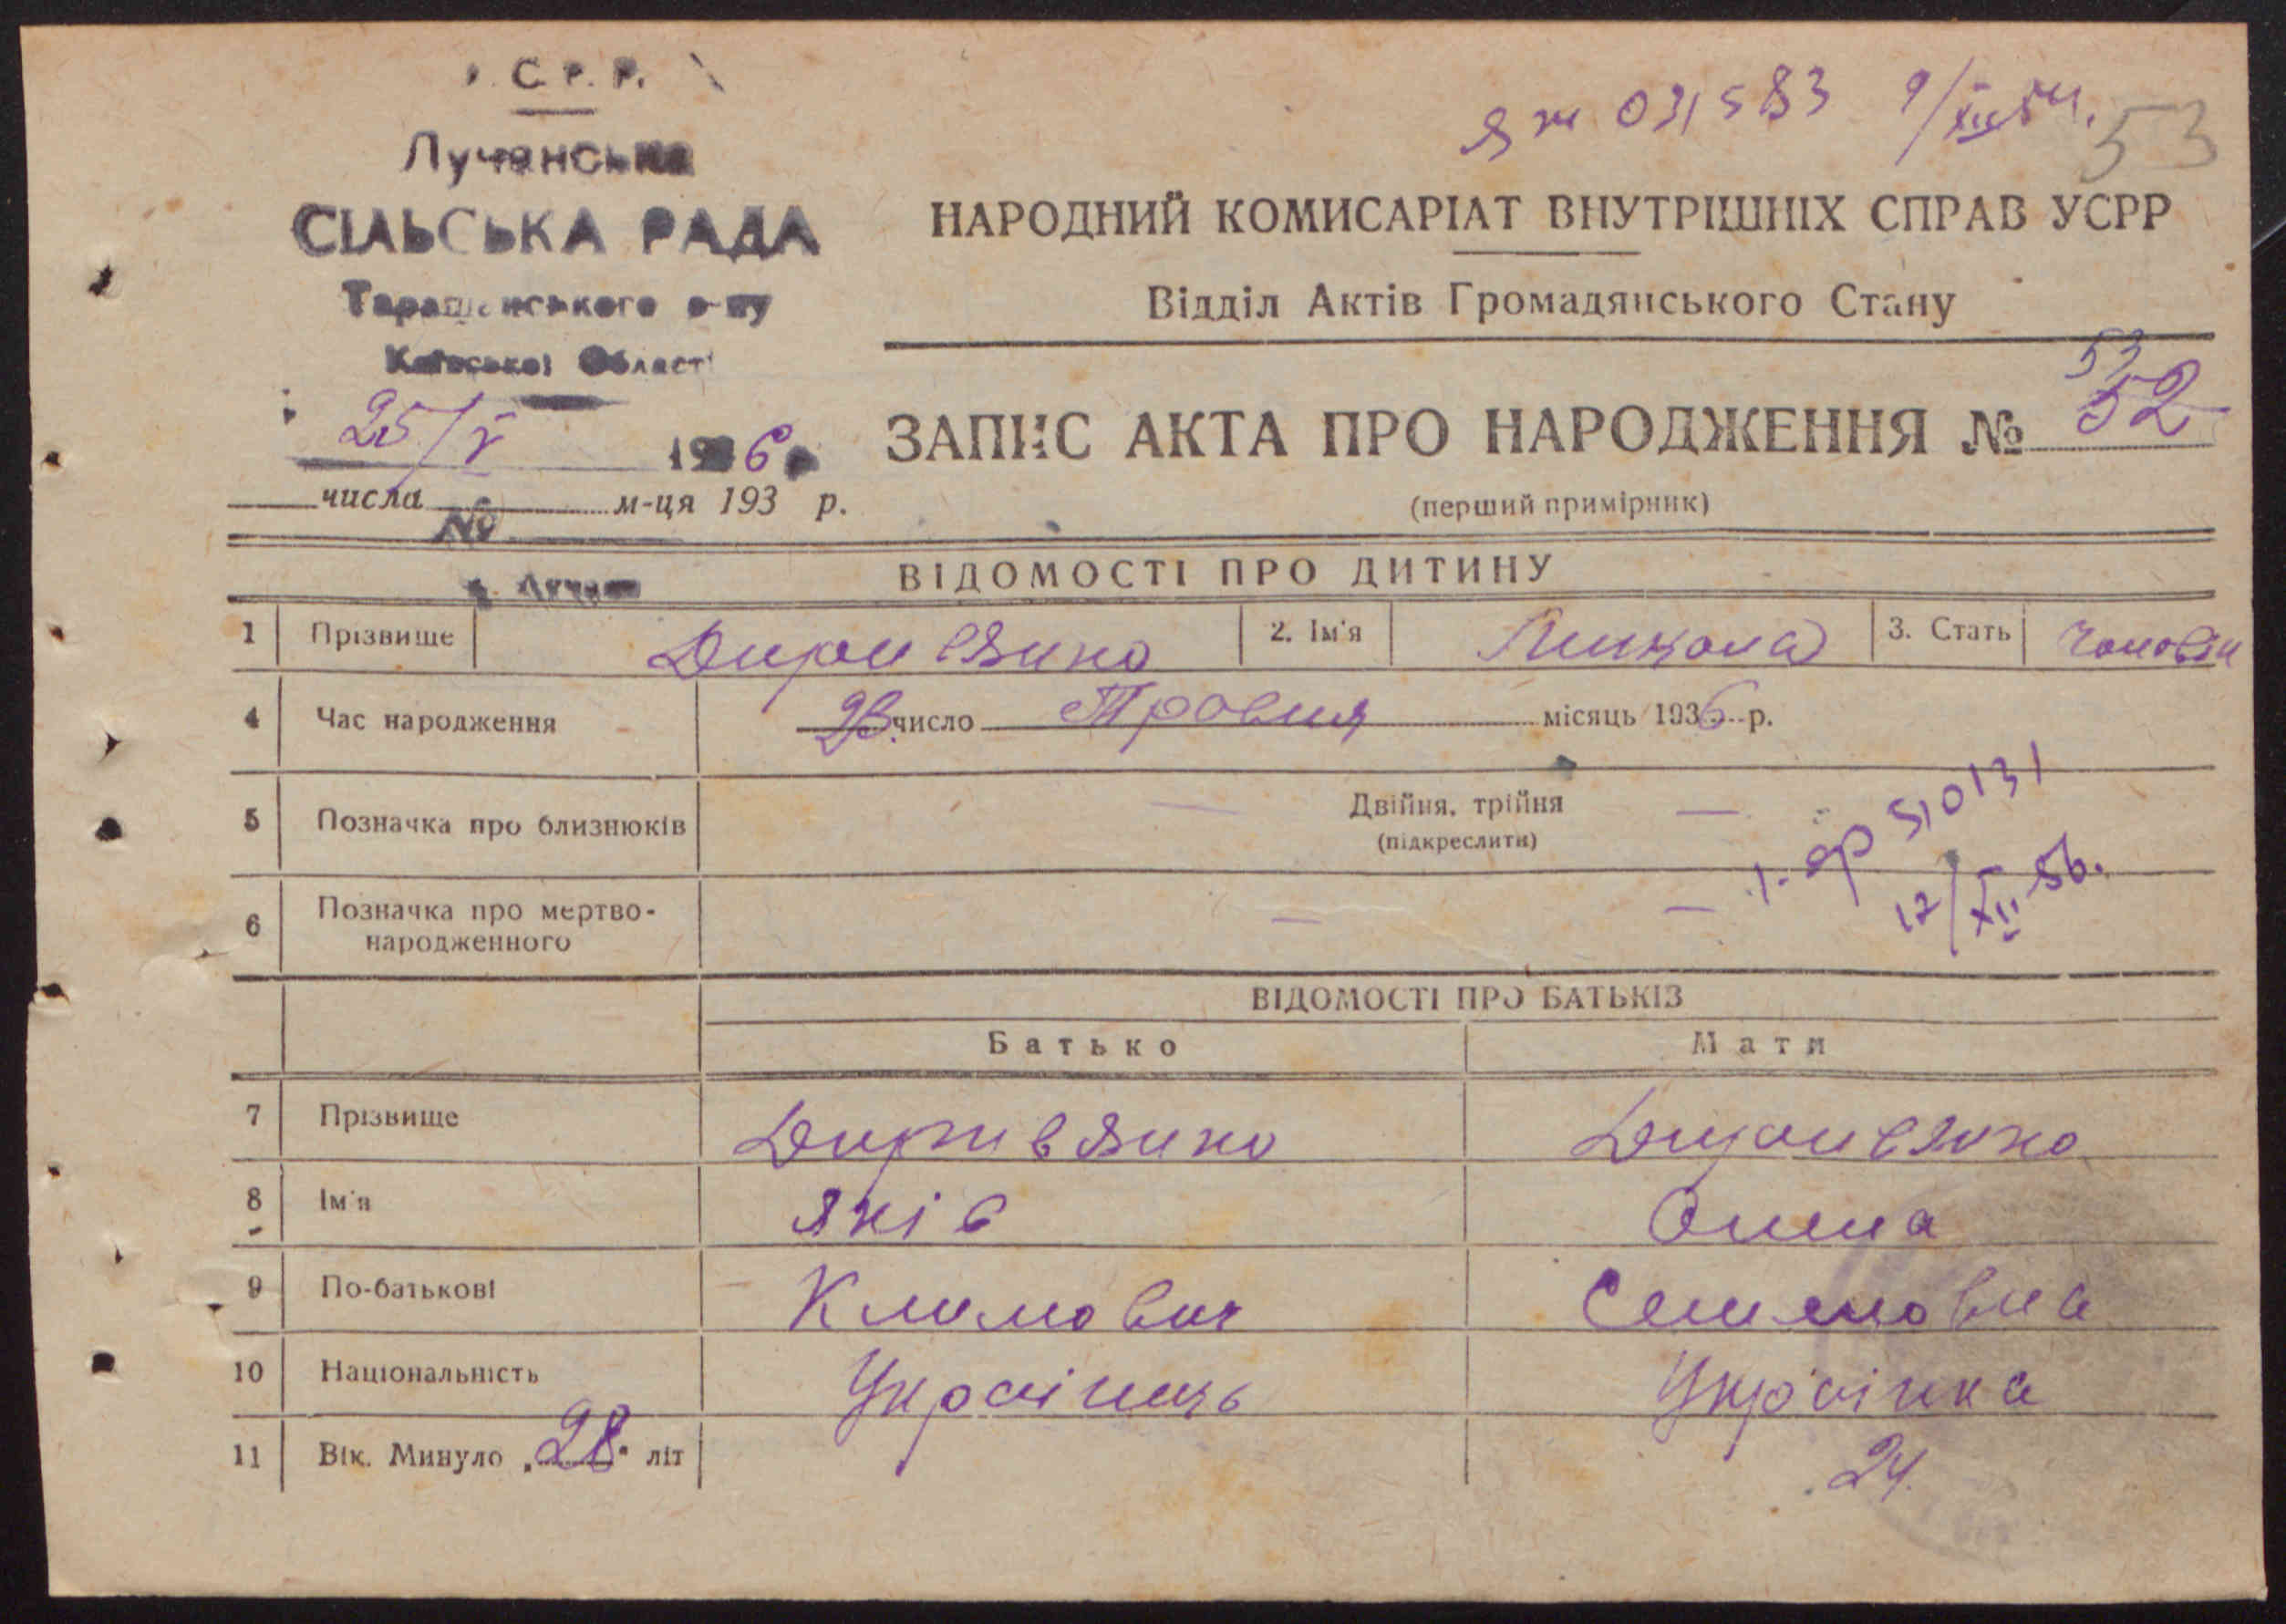 С. Р. Р.
Лучанська
СІЛЬСЬКА РАДА
Таращанського р-ну
Київської Області
25/V 1936 р.
числа м-ця 193 р.
№
с. Лучан
Я ж 031583 9/XII 54.
53
НАРОДНИЙ КОМИСАРІАТ ВНУТРІШНІХ СПРАВ УСРР
Відділ Актів Громадянського Стану
53
ЗАПИС АКТА ПРО НАРОДЖЕННЯ № 52
(перший примірник)
ВІДОМОСТІ ПРО ДИТИНУ
1 Прізвище Диривянко 2. Ім'я Микола 3. Стать Чоловіч
4 Час народження 23 число Травня місяць 1936 р.
5 Позначка про близнюків — Двійня, трійня —
(підкреслити)
510131
6 Позначка про мертво-
народженного — —
12/XII 56.
ВІДОМОСТІ ПРО БАТЬКІВ
Батько Мати
7 Прізвище Диривянко Диривянко
8 Ім'я Яків
9 По-батькові Климович Семеновна
10 Національність Українець Українка
11 Вік. Минуло „28" літ 24.